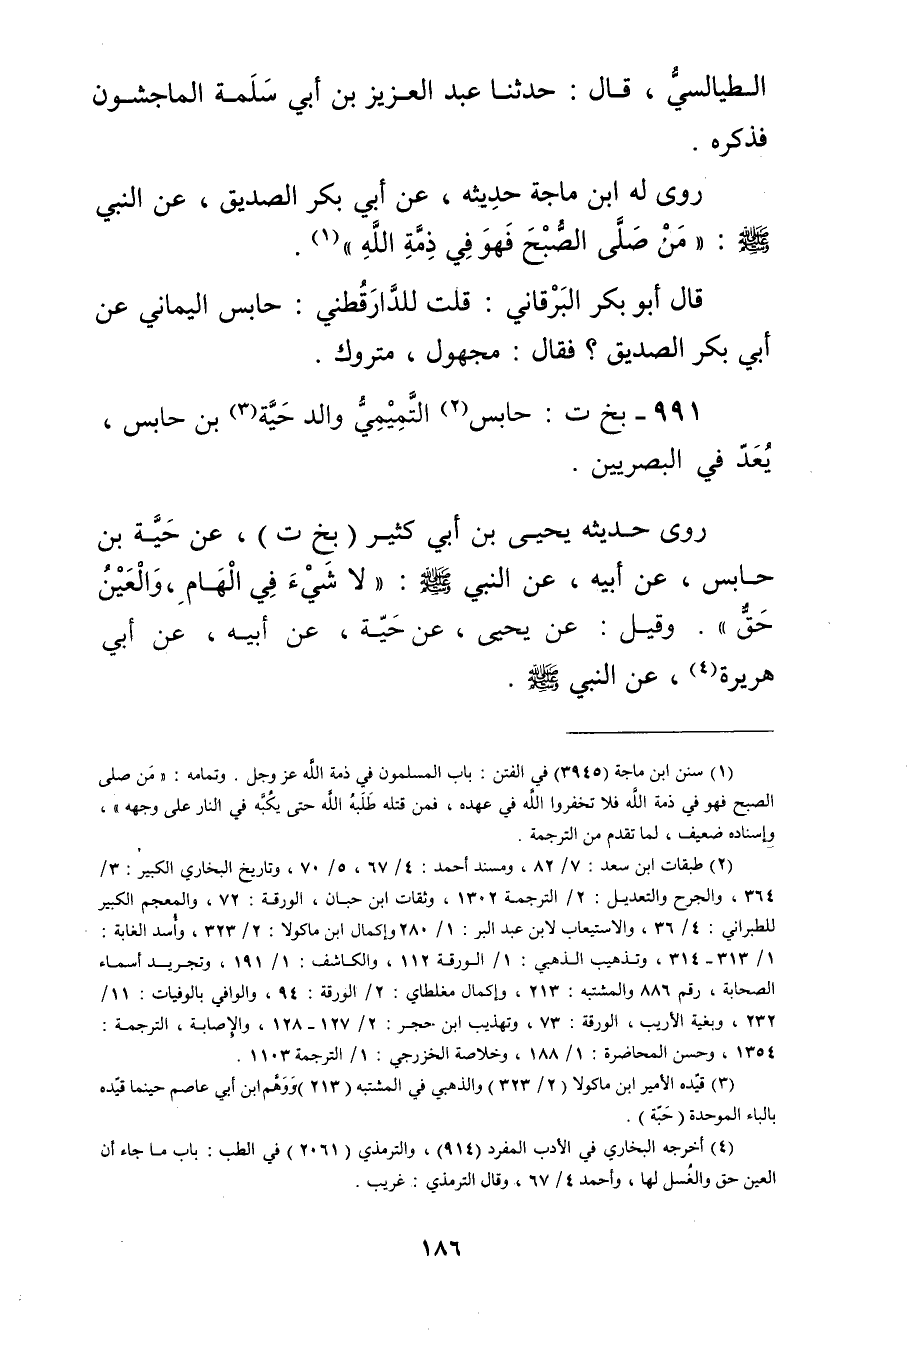 الطيالسيُّ ، قال : حدثنا عبد العزيز بن أبي سَلَمة الماجشون
فذكره .
روى له ابن ماجة حديثه ، عن أبي بكر الصديق ، عن النبي
ﷺ : « مَنْ صَلَّى الصُّبْحَ فَهوَ فِي ذِمَّةِ اللَّهِ »(١) .
قال أبو بكر البَرْقاني : قلت للدَّارَقُطني : حابس اليماني عن
أبي بكر الصديق ؟ فقال : مجهول ، متروك .
٩٩١ - بخ ت : حابس(٢) التَّمِيْمِيُّ والد حَيَّة(٣) بن حابس ،
يُعَدّ في البصريين .
روى حديثه يحيى بن أبي كثير ( بخ ت ) ، عن حَيَّة بن
حابس ، عن أبيه ، عن النبي ﷺ : « لا شَيْءَ فِي الْهَامِ ، وَالْعَيْنُ
حَقٌّ » . وقيل : عن يحيى ، عن حَيّة ، عن أبيه ، عن أبي
هريرة(٤) ، عن النبي ﷺ .
(١) سنن ابن ماجة (٣٩٤٥) في الفتن : باب المسلمون في ذمة اللَّه عز وجل . وتمامه : « مَن صلى
الصبح فهو في ذمة اللَّه فلا تخفروا اللَّه في عهده ، فمن قتله طَلَبَهُ اللَّه حتى يكُبَّه في النار على وجهه » ،
وإسناده ضعيف ، لما تقدم من الترجمة .
(٢) طبقات ابن سعد : ٧/ ٨٢ ، ومسند أحمد : ٤/ ٦٧ ، ٥/ ٧٠ ، وتاريخ البخاري الكبير : ٣/
٣٦٤ ، والجرح والتعديل : ٢/ الترجمة ١٣٠٢ ، وثقات ابن حبان ، الورقة : ٧٢ ، والمعجم الكبير
للطبراني : ٤/ ٣٦ ، والاستيعاب لابن عبد البر : ١/ ٢٨٠ وإكمال ابن ماكولا : ٢/ ٣٢٣ ، وأُسد الغابة :
١/ ٣١٣ - ٣١٤ ، وتذهيب الذهبي : ١/ الورقة ١١٢ ، والكاشف : ١/ ١٩١ ، وتجريد أسماء
الصحابة ، رقم ٨٨٦ والمشتبه : ٢١٣ ، وإكمال مغلطاي : ٢/ الورقة : ٩٤ ، والوافي بالوفيات : ١١/
٢٣٢ ، وبغية الأريب ، الورقة : ٧٣ ، وتهذيب ابن حجر : ٢/ ١٢٧ - ١٢٨ ، والإصابة ، الترجمة :
١٣٥٤ ، وحسن المحاضرة : ١/ ١٨٨ ، وخلاصة الخزرجي : ١/ الترجمة ١١٠٣ .
(٣) قيّده الأمير ابن ماكولا ( ٢/ ٣٢٣ ) والذهبي في المشتبه ( ٢١٣ ) وَوَهَّم ابن أبي عاصم حينما قيّده
بالباء الموحدة ( حَبّة ) .
(٤) أخرجه البخاري في الأدب المفرد (٩١٤) ، والترمذي ( ٢٠٦١ ) في الطب : باب ما جاء أن
العين حق والغُسل لها ، وأحمد ٤/ ٦٧ ، وقال الترمذي : غريب .
١٨٦